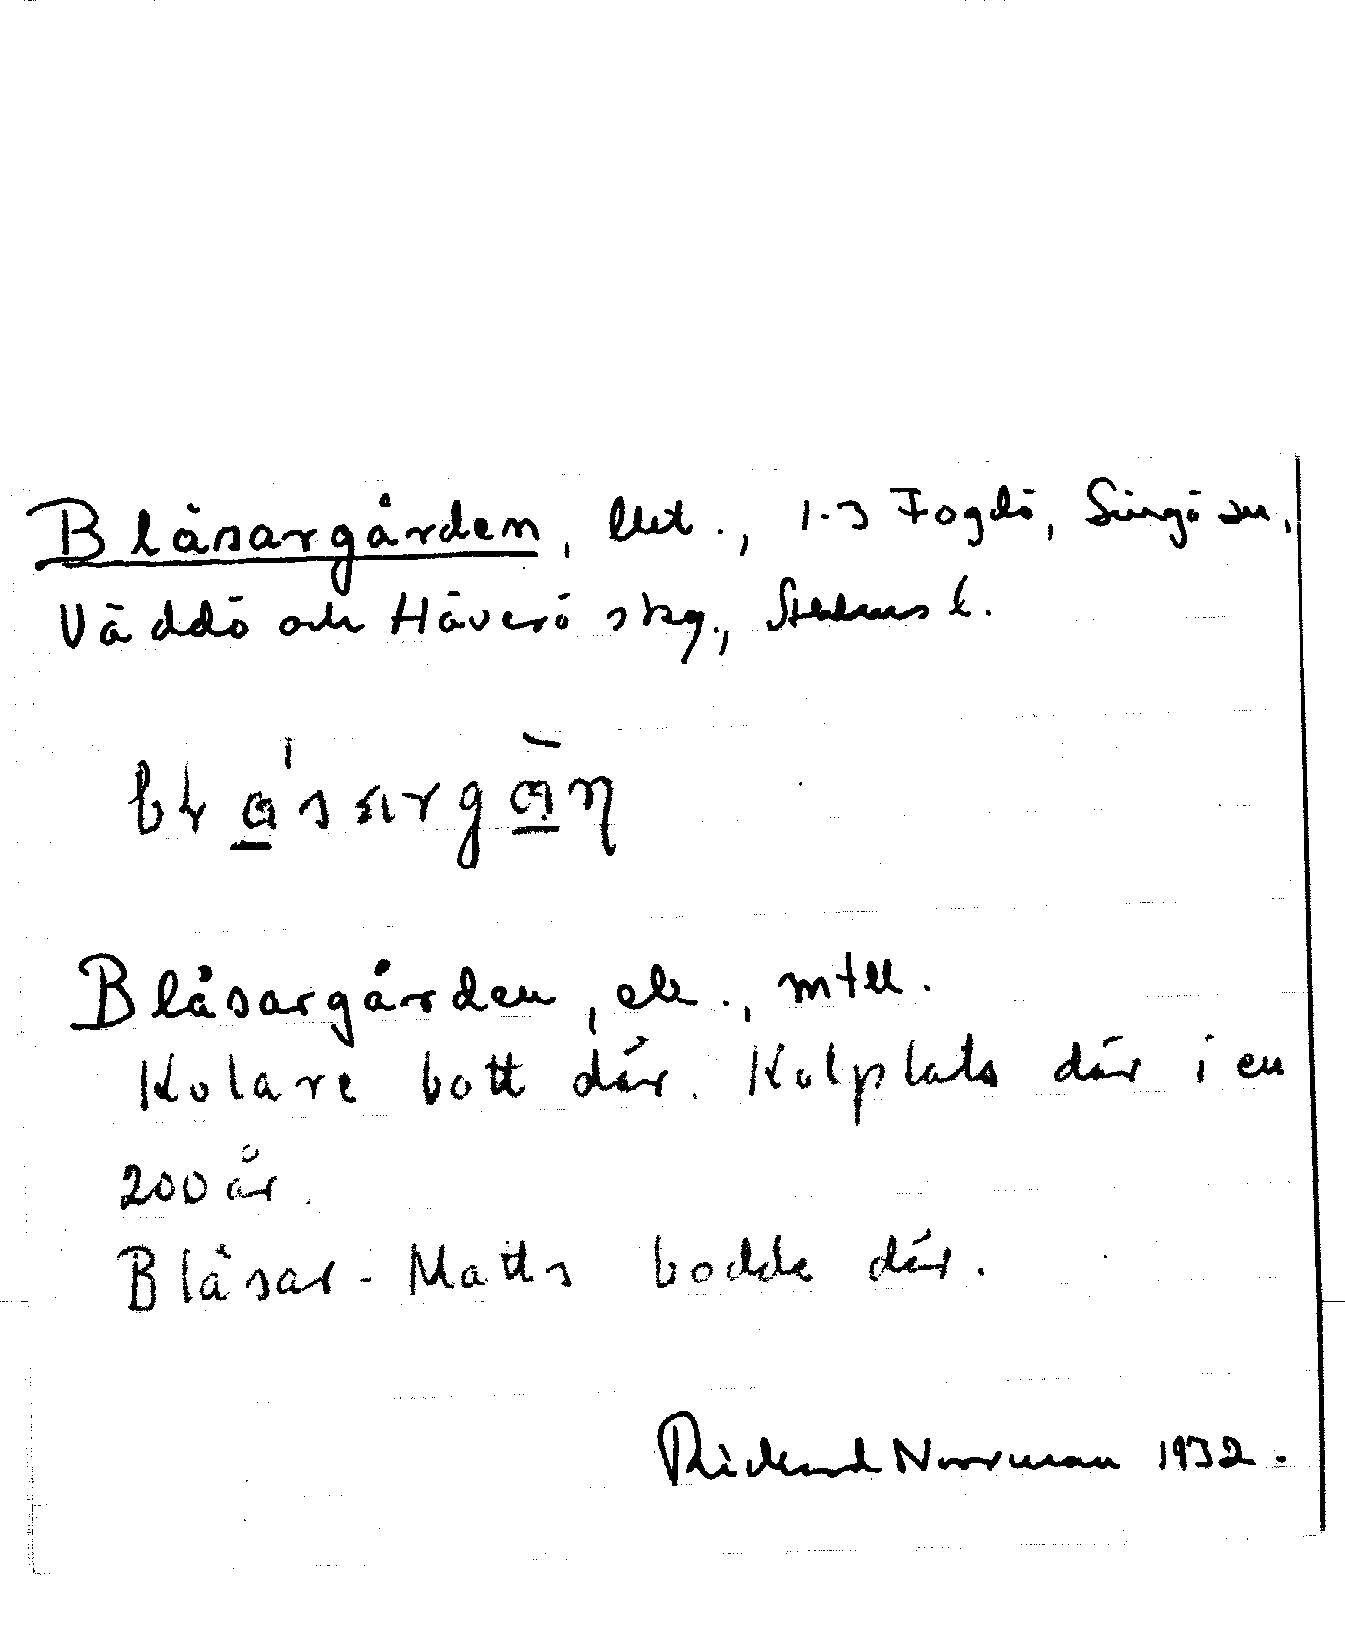 Blåsargården, lht., 1-3 Fogdö, Singö sn,
Väddö och Häverö skg., Sthlms l.
Blåsargården, ek., mtll.
Kolare bott där. Kolplats där i en
200 år.
Blåsar-Matts bodde där.
Rickard Norrman 1932.